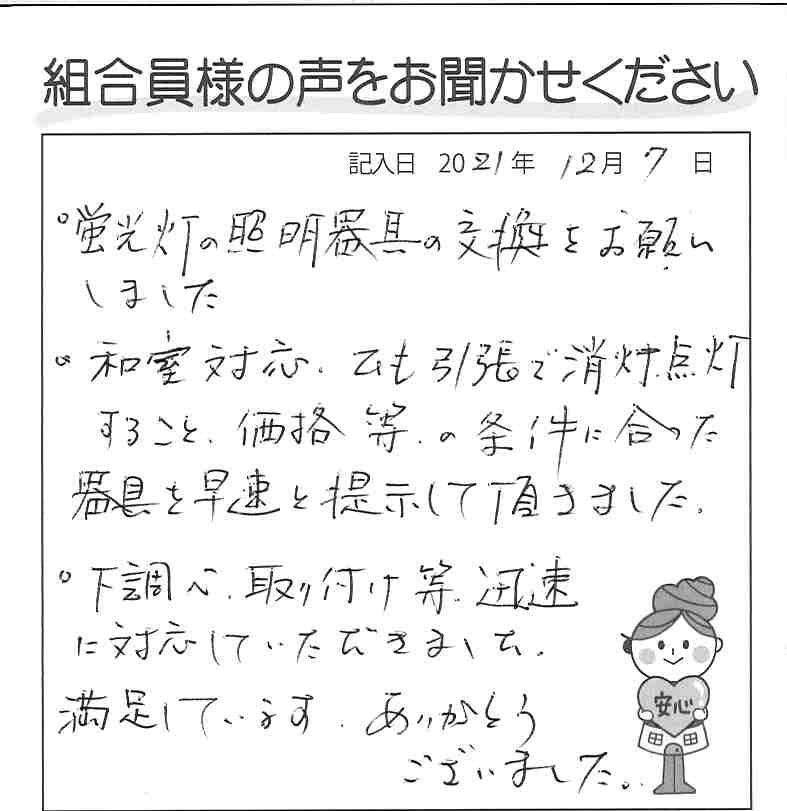 組合員様の声をお聞かせください
記入日 2021年 12月 7日
○蛍光灯の照明器具の交換をお願い
しました
○和室対応、ひも引張で消灯点灯
すること、価格等、の条件に合った
器具を早速と提示して頂きました。
○下調べ、取り付け等、迅速
に対応していただきました。
満足しています。ありがとう
ございました。
安心